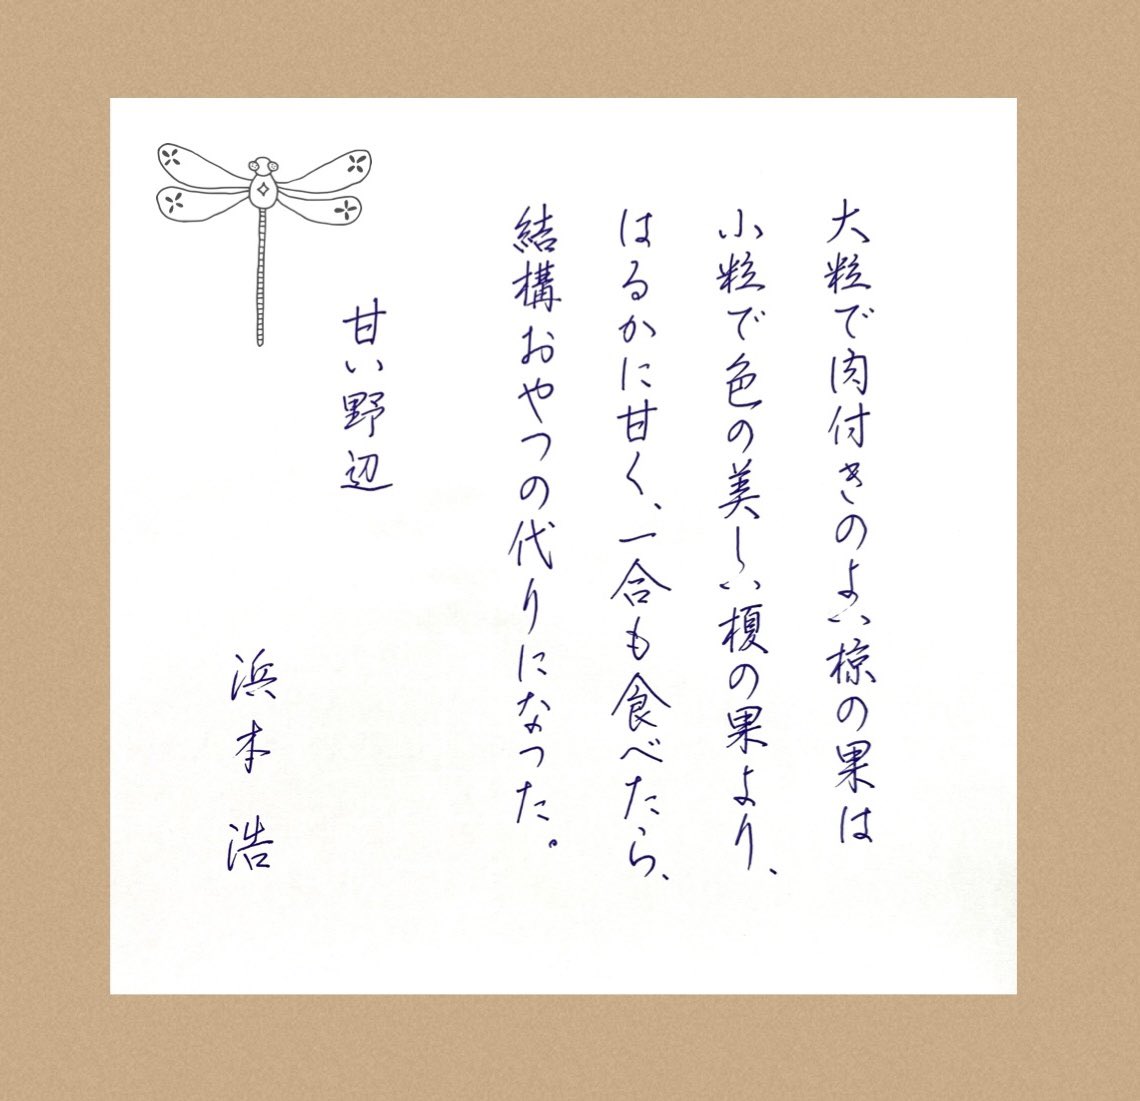 大粒で肉付きのよい椋の果は
小粒で色の美しい榎の果より、
はるかに甘く、一合も食べたら、
結構おやつの代りになった。
甘い野辺
浜本 浩